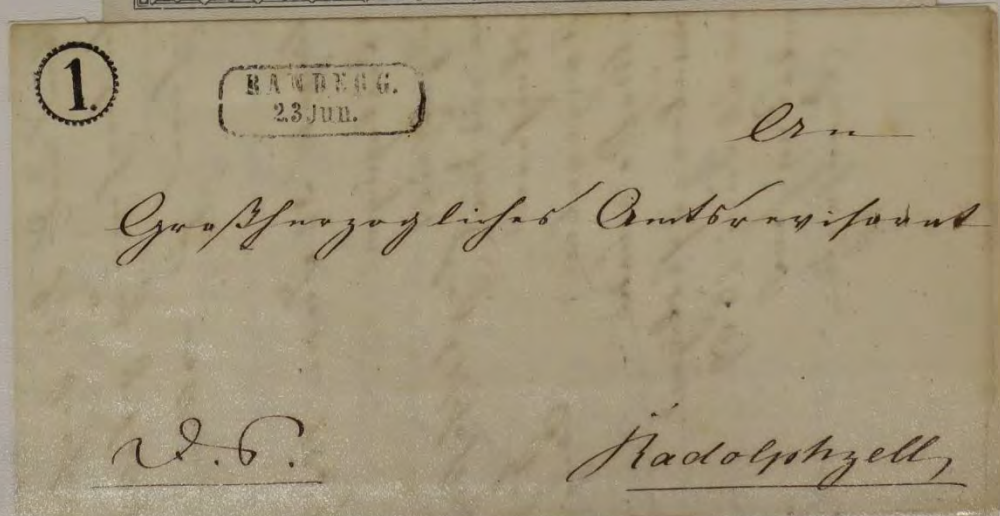 1.
RANDEGG.
23 Jun.
An
Großherzogliches Amtsrevisorat
D. S.
Radolphzell,